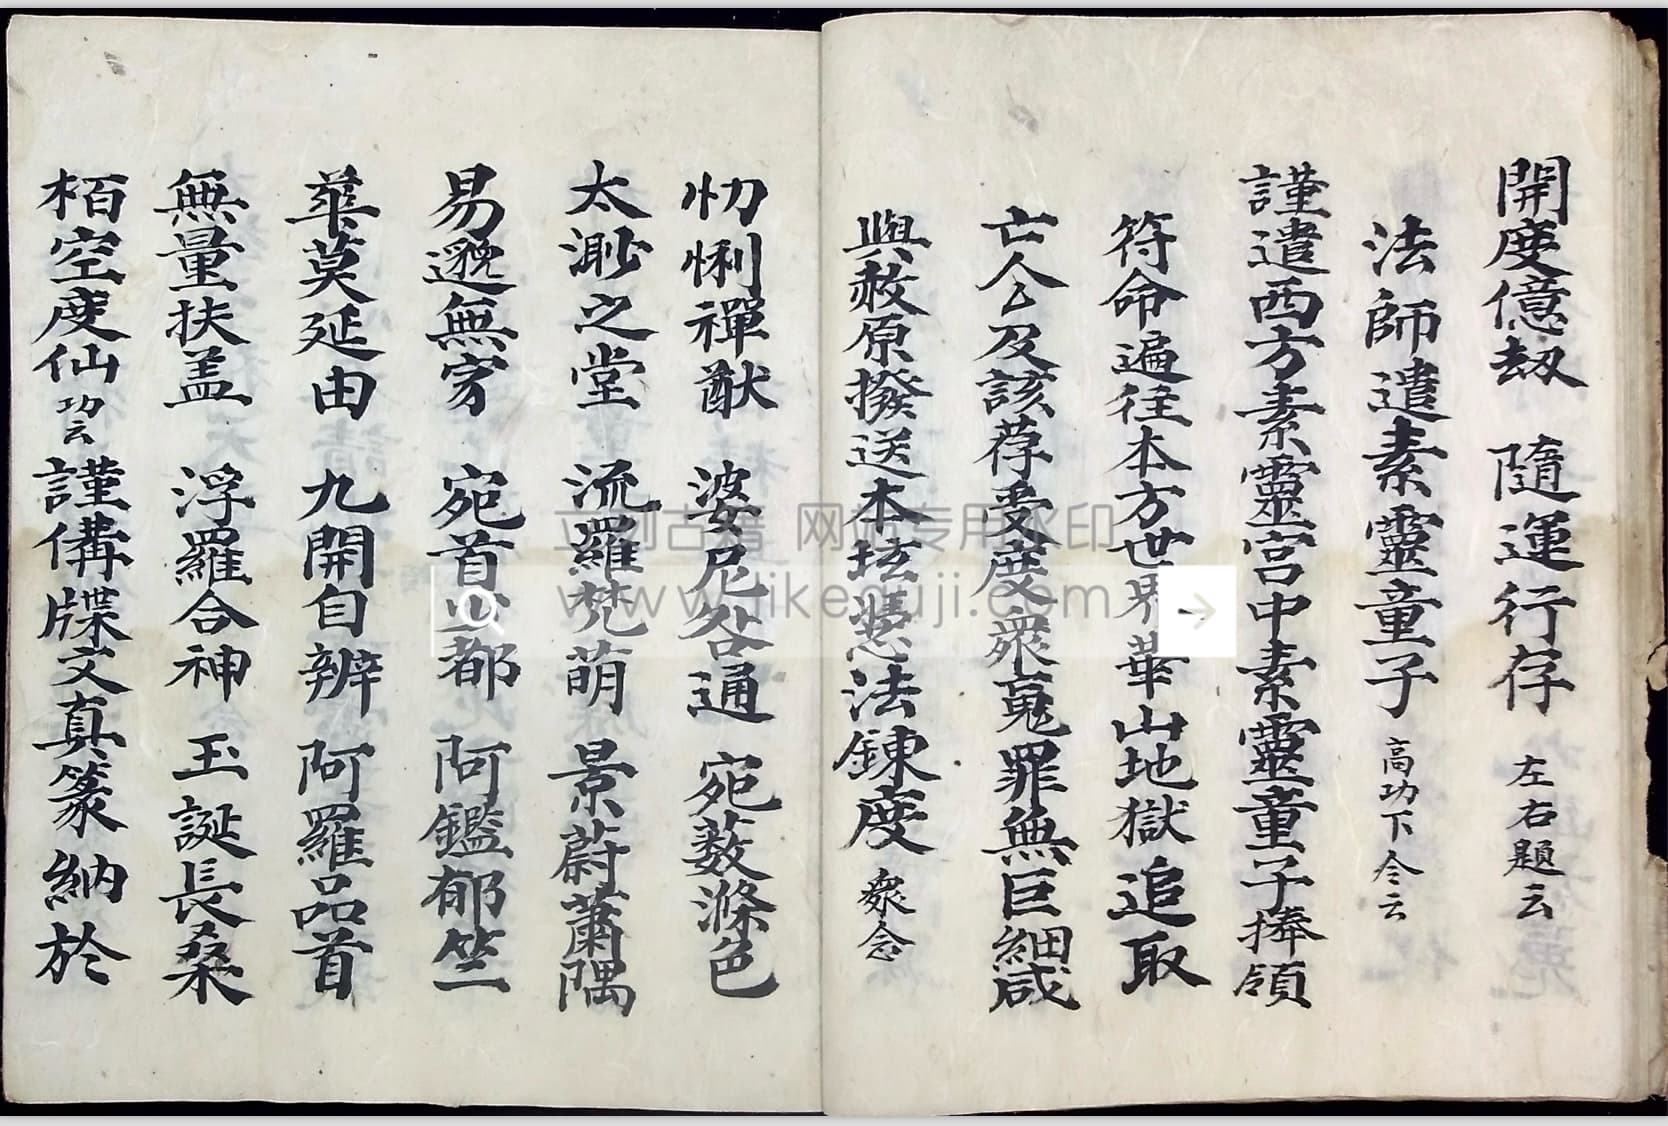 開度億劫　隨運行存　左右題云
法師遣素靈童子　高功下令云
謹遣西方素靈宮中素靈童子捧領
符命遍往本方世界華山地獄追取
亡人厶及該荐受度衆䰟罪無巨細咸
與赦原撥送本坛憑法鍊度　衆念
忉悧禪猷　婆尼咎通　宛藪滌色
太渺之堂　流羅梵萌　景蔚蕭隅
易邈無穷　宛首少都　阿鑑郁竺
華莫延由　九開自辨　阿羅品首
無量扶盖　浮羅合神　玉誕長桑
栢空度仙　功云　謹備牒文真篆　納於
立刻古籍 网站专用水印
www.likeguji.com